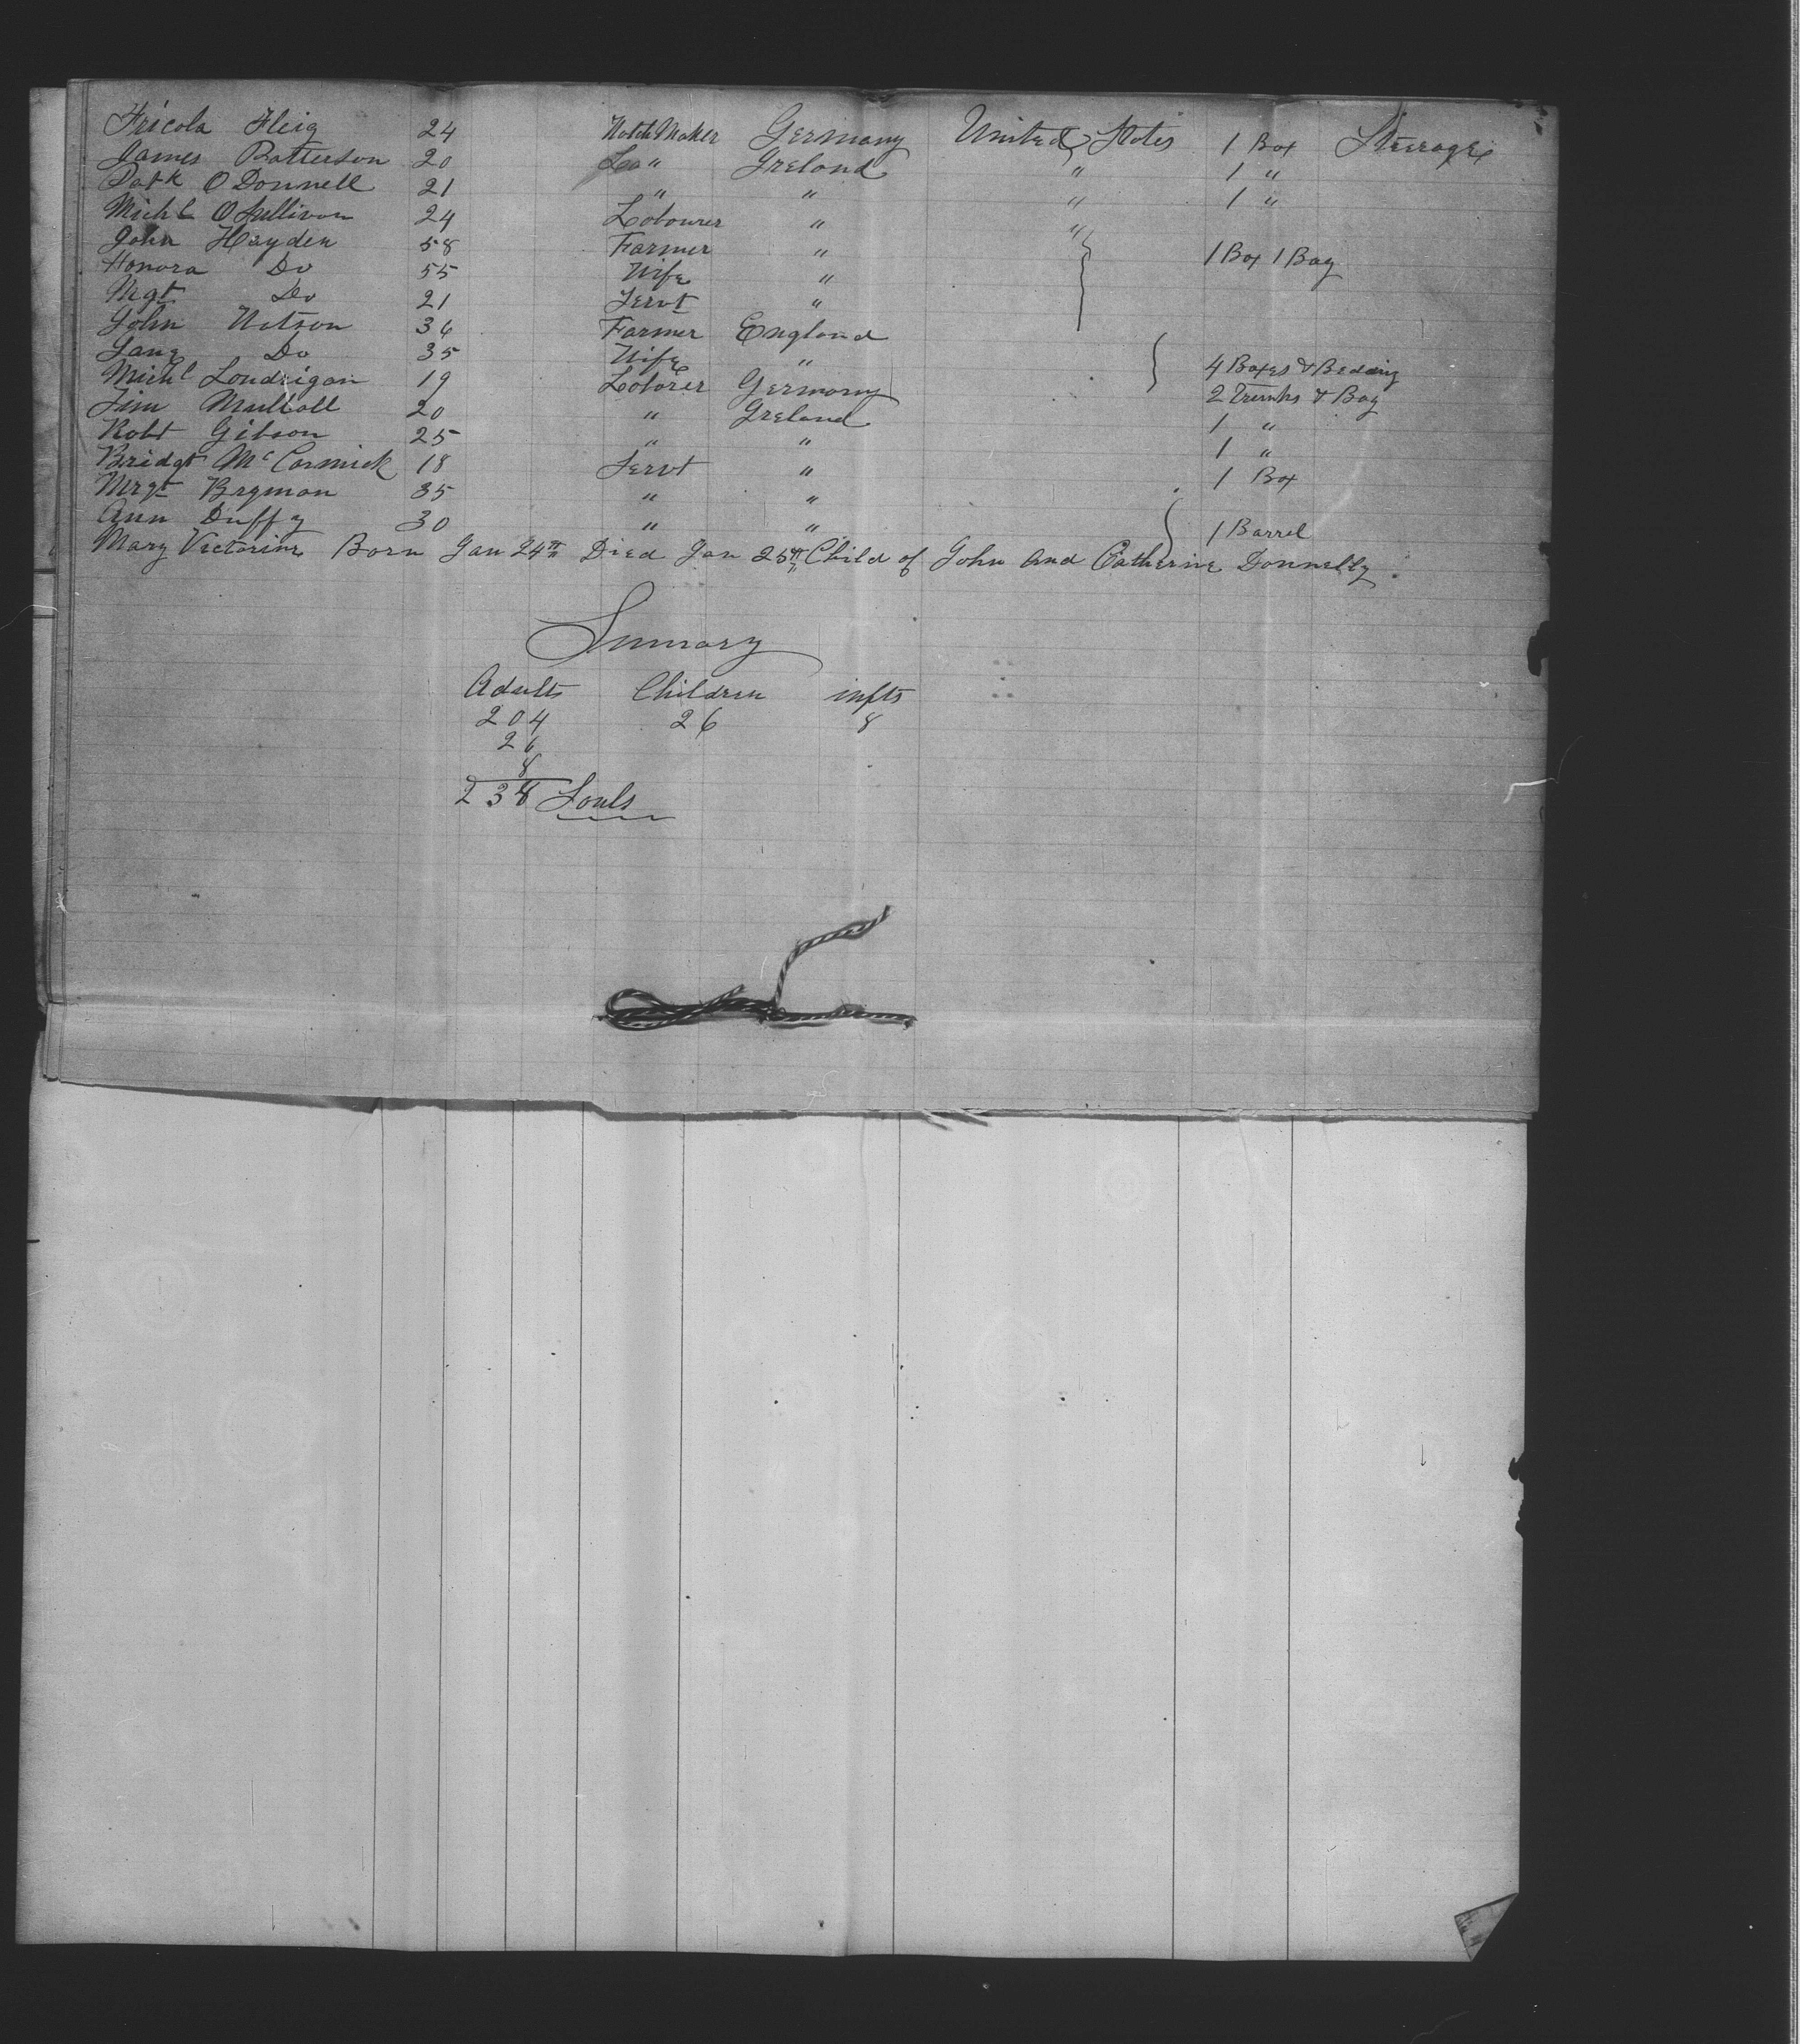 Fricola Fleig 24 Watch Maker Germany United States 1 Box Steerage
James Patterson 20 " Ireland " 1 "
Patk O Donnell 21 " " " 1 "
Michl O Sullivan 24 Labourer " "
John Hayden 58 Farmer " 1 Box 1 Bag
Honora Do 55 Wife "
Mgt Do 21 Servt "
John Watson 36 Farmer England
Jane Do 35 Wife " 4 Boxes & Bedding
Michl Londrigan 19 Laborer Germany 2 Trunks & Bag
Jim Mulhall 20 " Ireland 1 "
Robt Gibson 25 " " 1 "
Bridgt McCormick 18 Servt " 1 Box
Mrgt Brgman 35 " "
Ann Duffy 30 " " 1 Barrel
Mary Victorine Born Jan 24th Died Jan 25th Child of John and Catherine Donnelly.
Sumary
Adults Children infts
204 26 8
26
8
238 Souls